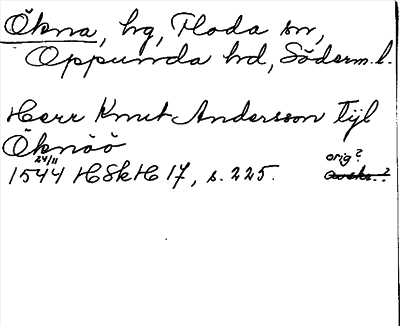 Ökna, hg, Floda sn,
Oppunda hd, Söderm.l.
Herr Knut Andersson Lijl
Öknöö
24/11 orig?
1544 HSkH 17, s. 225. Avskr.?